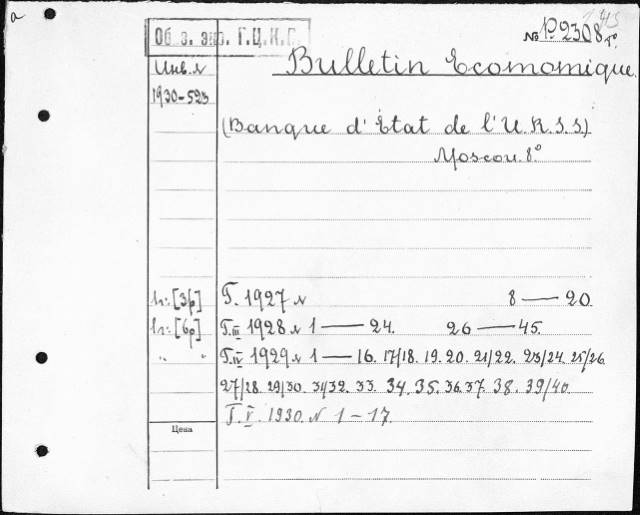 a
Об. з. экз. Г.Ц.К.П.
№ P. 2308 т°
Инв. №
1930-523
Bulletin Economique.
(Banque d'Etat de l'U.R.S.S.)
Moscou. 8°
[3р] Г. 1927 № 8 — 20
[6р] Г.III 1928 № 1 — 24. 26 — 45.
" " Г.IV 1929 № 1 — 16. 17/18. 19. 20. 21/22. 23/24. 25/26
27/28. 29/30. 31/32. 33. 34. 35. 36. 37. 38. 39/40.
Г. V. 1930. № 1 - 17.
Цена